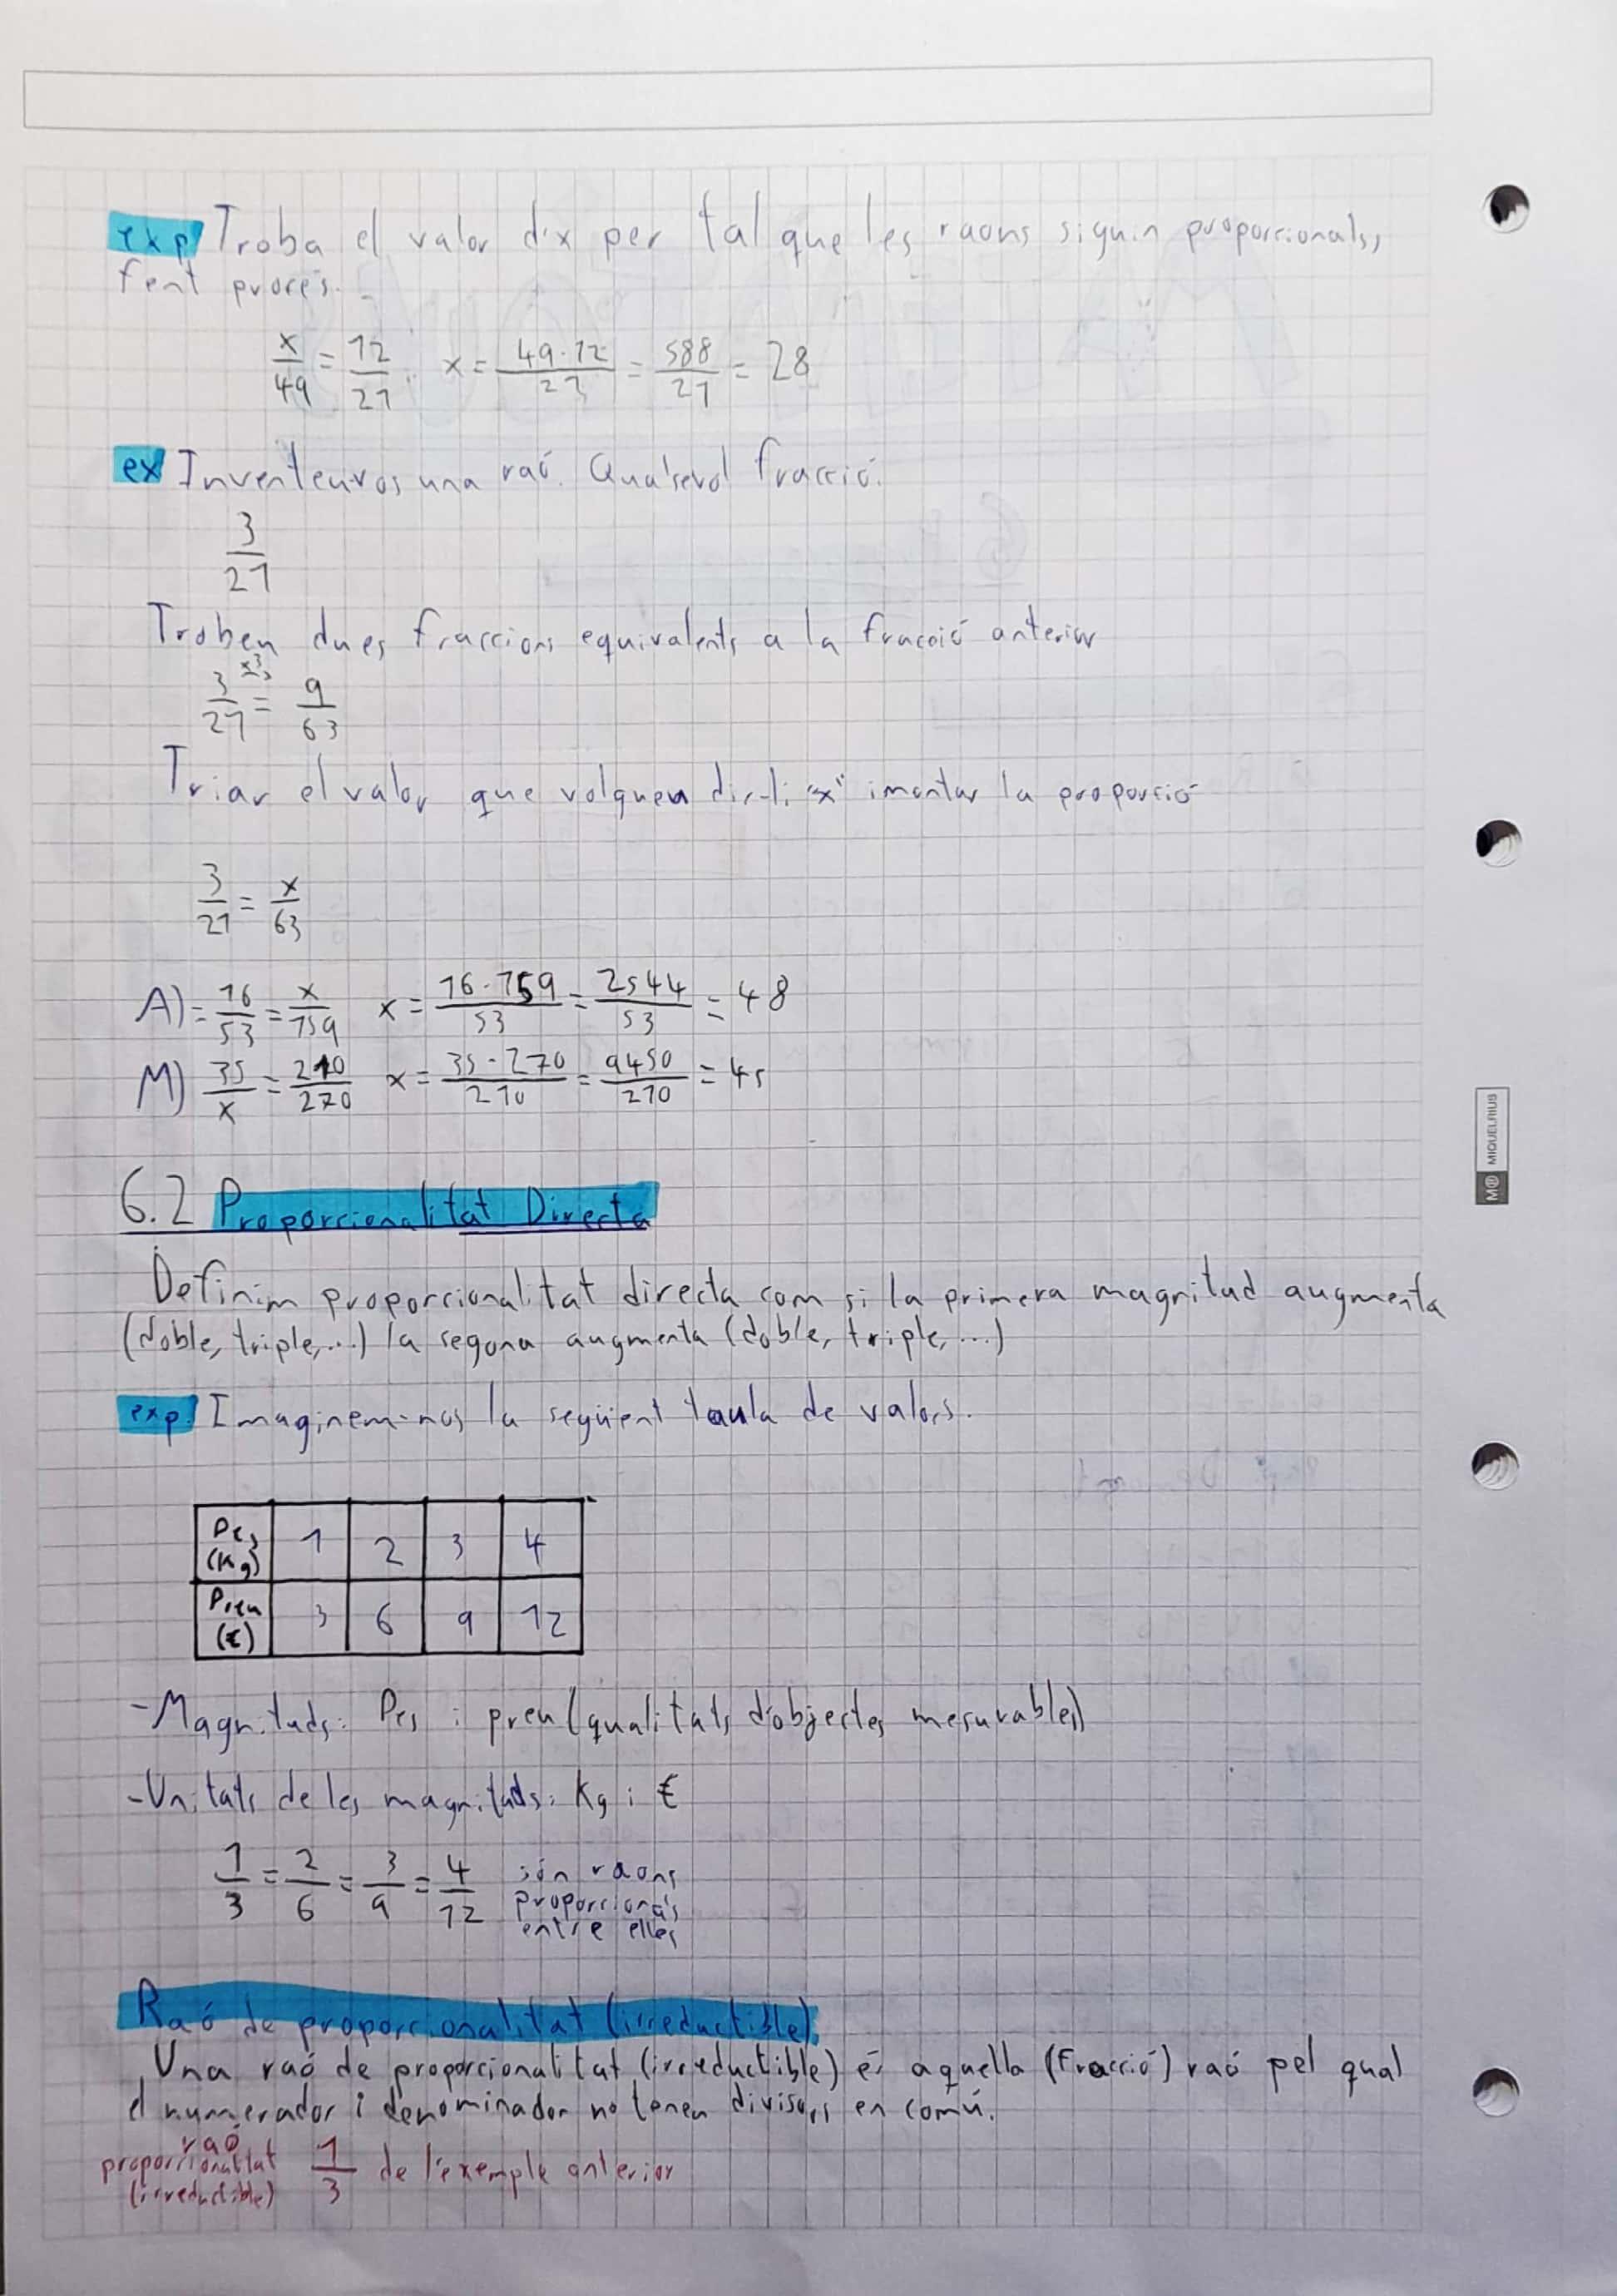 exp Troba el valor d'x per tal que les raons siguin proporcionals,
fent procés.
x/49 = 12/21 x = 49·12/21 = 588/21 = 28
ex Inventeu-vos una raó. Qualsevol fracció.
3/21
Trobeu dues fraccions equivalents a la fracció anterior
3/21 x3 x3 = 9/63
Triar el valor que volgueu dir-li "x" i montar la proporció
3/21 = x/63
A) = 16/53 = x/159 x = 16·159/53 = 2544/53 = 48
M) 35/x = 210/270 x = 35·270/210 = 9450/210 = 45
6.2 Proporcionalitat Directa
Definim proporcionalitat directa com si la primera magnitud augmenta
(doble, triple,...) la segona augmenta (doble, triple, ...)
exp. Imaginem-nos la següent taula de valors.
Pes (Kg) 1 2 3 4
Preu (€) 3 6 9 12
- Magnituds: Pes i preu (qualitats d'objectes mesurables)
- Unitats de les magnituds: Kg i €
1/3 = 2/6 = 3/9 = 4/12 són raons
proporcionals
entre elles
Raó de proporcionalitat (irreductible).
Una raó de proporcionalitat (irreductible) és aquella (Fracció) raó pel qual
el numerador i denominador no tenen divisors en comú.
raó
proporcionalitat 1/3 de l'exemple anterior
(irreductible)
M® MIQUELRIUS